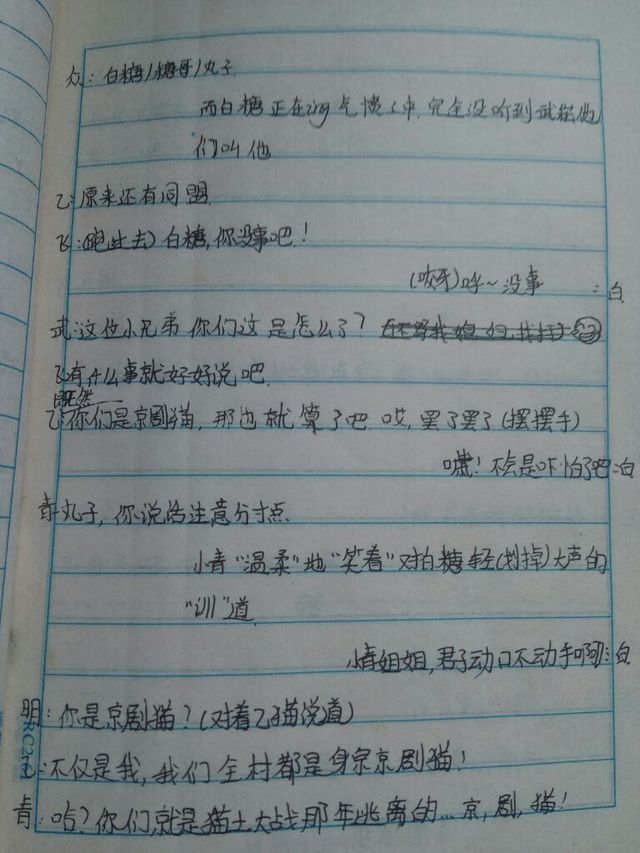 众：白糖/糖哥/丸子
而白糖正在ing气愤中,完全没听到武松他
们叫他
乙:原来还有同盟.
飞:(跑过去)白糖,你没事吧!
(咬牙)呼~没事 :白
武:这位小兄弟 你们这是怎么了?
飞:有什么事就好好说吧.
既然
乙:你们是京剧猫,那也就算了吧 哎,罢了罢了(摆摆手)
噗!不会是吓怕了吧:白
青:丸子,你说话注意分寸点.
小青"温柔"地"笑着"对拍糖轻(划掉)大声的
"训"道.
小青姐姐,君子动口不动手啊:白
明:你是京剧猫?(对着乙猫说道)
乙:不仅是我,我们全村都是身宗京剧猫!
青:哈?你们就是猫土大战那年逃离的...京,剧,猫!